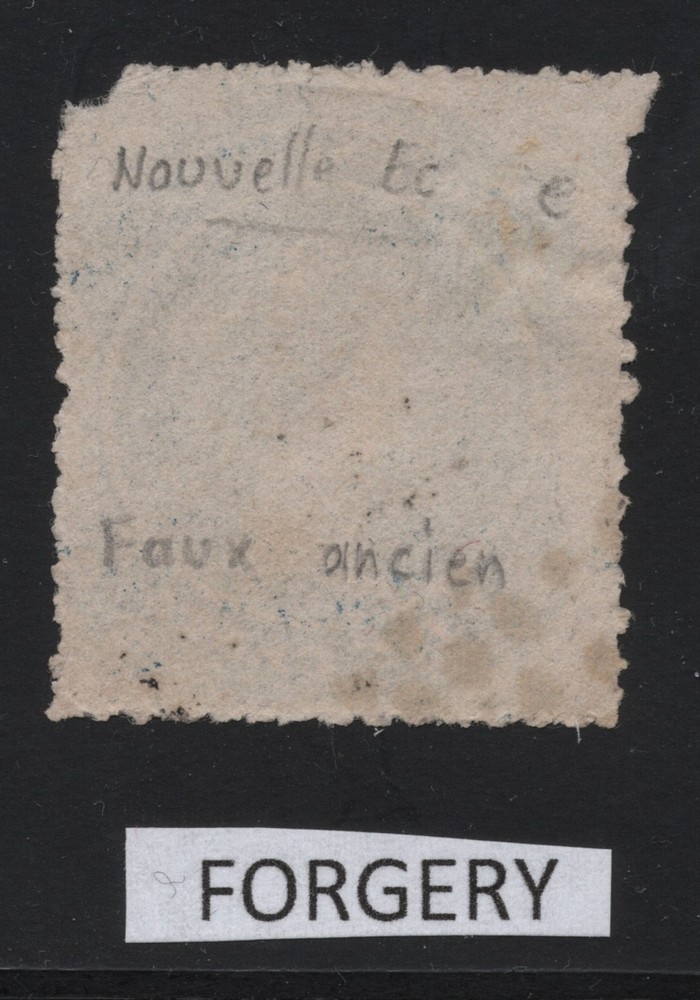 Nouvelle
Faux ancien
FORGERY